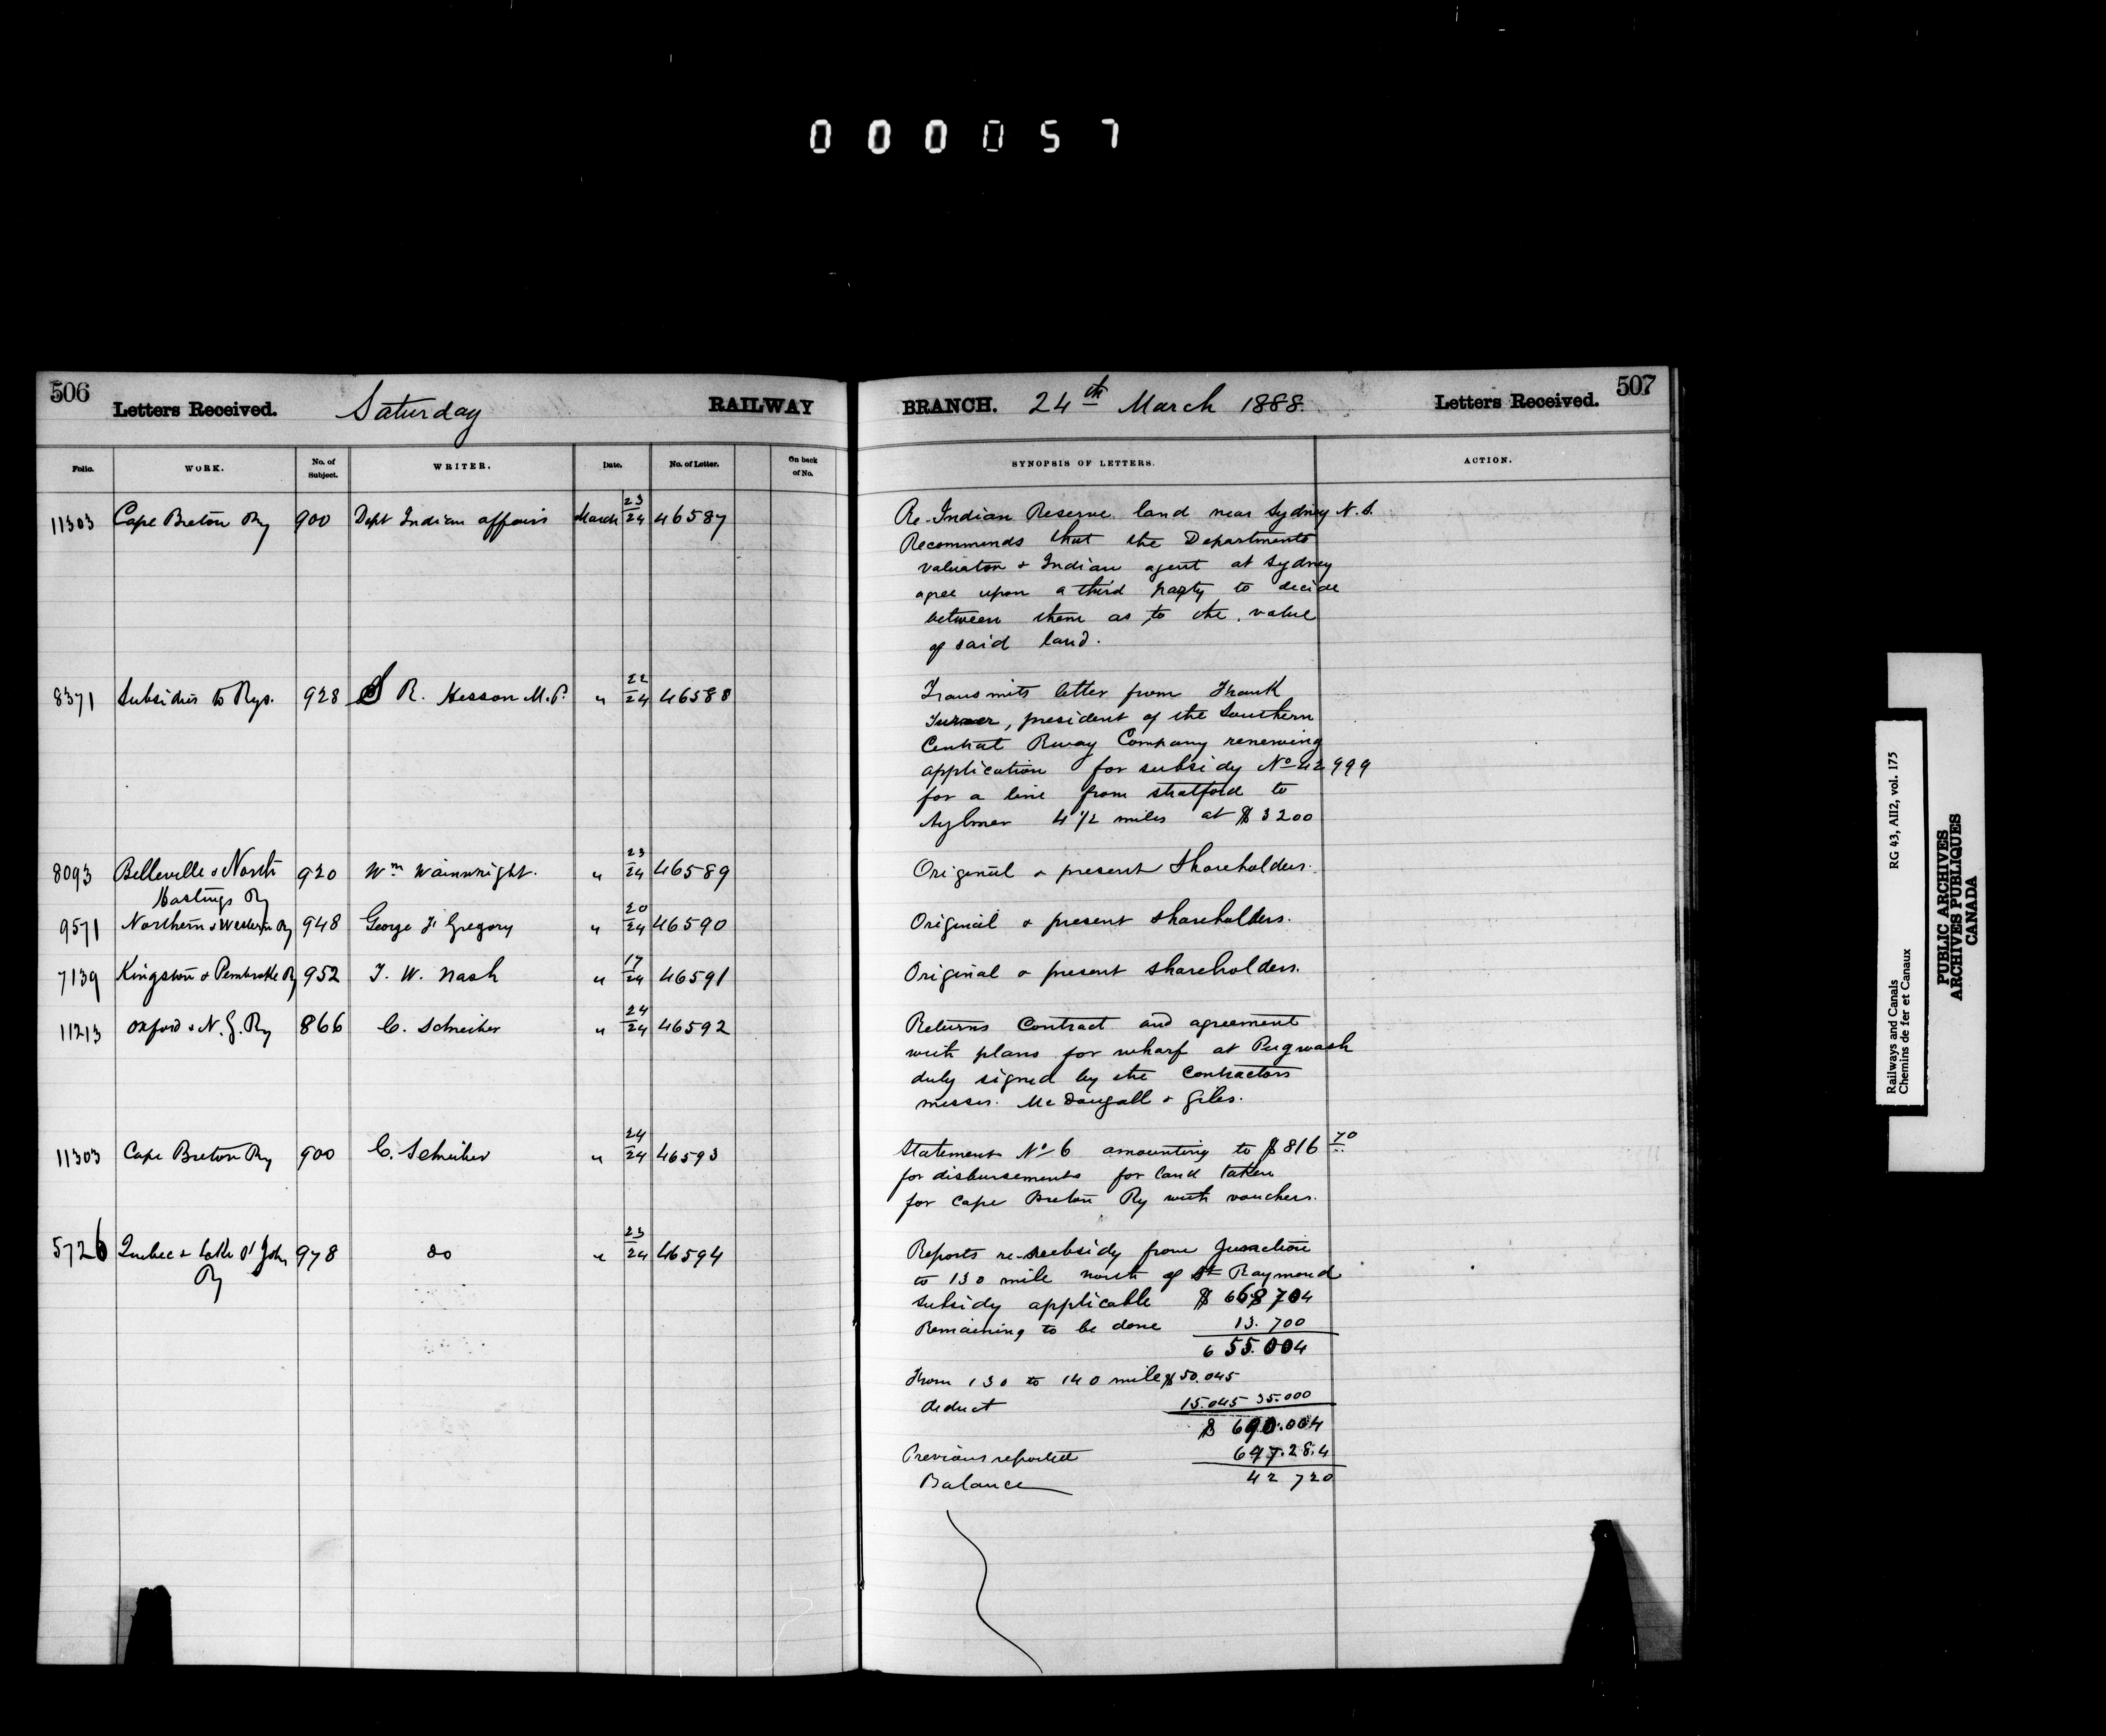 000057
506 Letters Received. Saturday RAILWAY
BRANCH. 24th March 1888. Letters Received. 507
Folio. WORK. No. of Subject. WRITER. Date. No. of Letter. On back of No.
SYNOPSIS OF LETTERS. ACTION.
11303 Cape Breton Ry 900 Dept Indian affairs March 23/24 46587
Re-Indian Reserve land near Sydney N.S.
Recommends that the Departments
valuator & Indian agent at Sydney
agree upon a third party to decide
between them as to the value
of said land.
8371 Subsidies to Rys. 928 S R. Hesson M.P. " 22/24 46588
Transmits letter from Frank
Turner, president of the Southern
Central Rway Company renewing
application for subsidy No 42999
for a line from Stratford to
Aylmer 4 1/2 miles at $3200
8093 Belleville & North 920 Wm Wainwright. " 23/24 46589
Hastings Ry
Original & present Shareholders.
9571 Northern & Western Ry 948 George F. Gregory " 20/24 46590
Original & present shareholders.
7139 Kingston & Pembroke Ry 952 T. W. Nash " 17/24 46591
Original & present shareholders.
11213 Oxford & N. G. Ry 866 C. Schreiber " 24/24 46592
Returns Contract and agreement
with plans for wharf at Pugwash
duly signed by the Contractors
messrs. McDougall & Giles.
11303 Cape Breton Ry 900 C. Schreiber " 24/24 46593
Statement No 6 amounting to $816 70
for disbursements for land taken
for Cape Breton Ry with vouchers.
5726 Quebec & Lake St John 978 do " 23/24 46594
Ry
Reports re-subsidy from Junction
to 130 mile north of St Raymond
subsidy applicable $ 668704
Remaining to be done 13.700
655.004
From 130 to 140 mile $50.045
deduct 15.045 35.000
$ 690.004
Previous reported 647.28.4
Balance 42 720
Railways and Canals RG 43, AII2, vol. 175
Chemins de fer et Canaux
PUBLIC ARCHIVES
ARCHIVES PUBLIQUES
CANADA